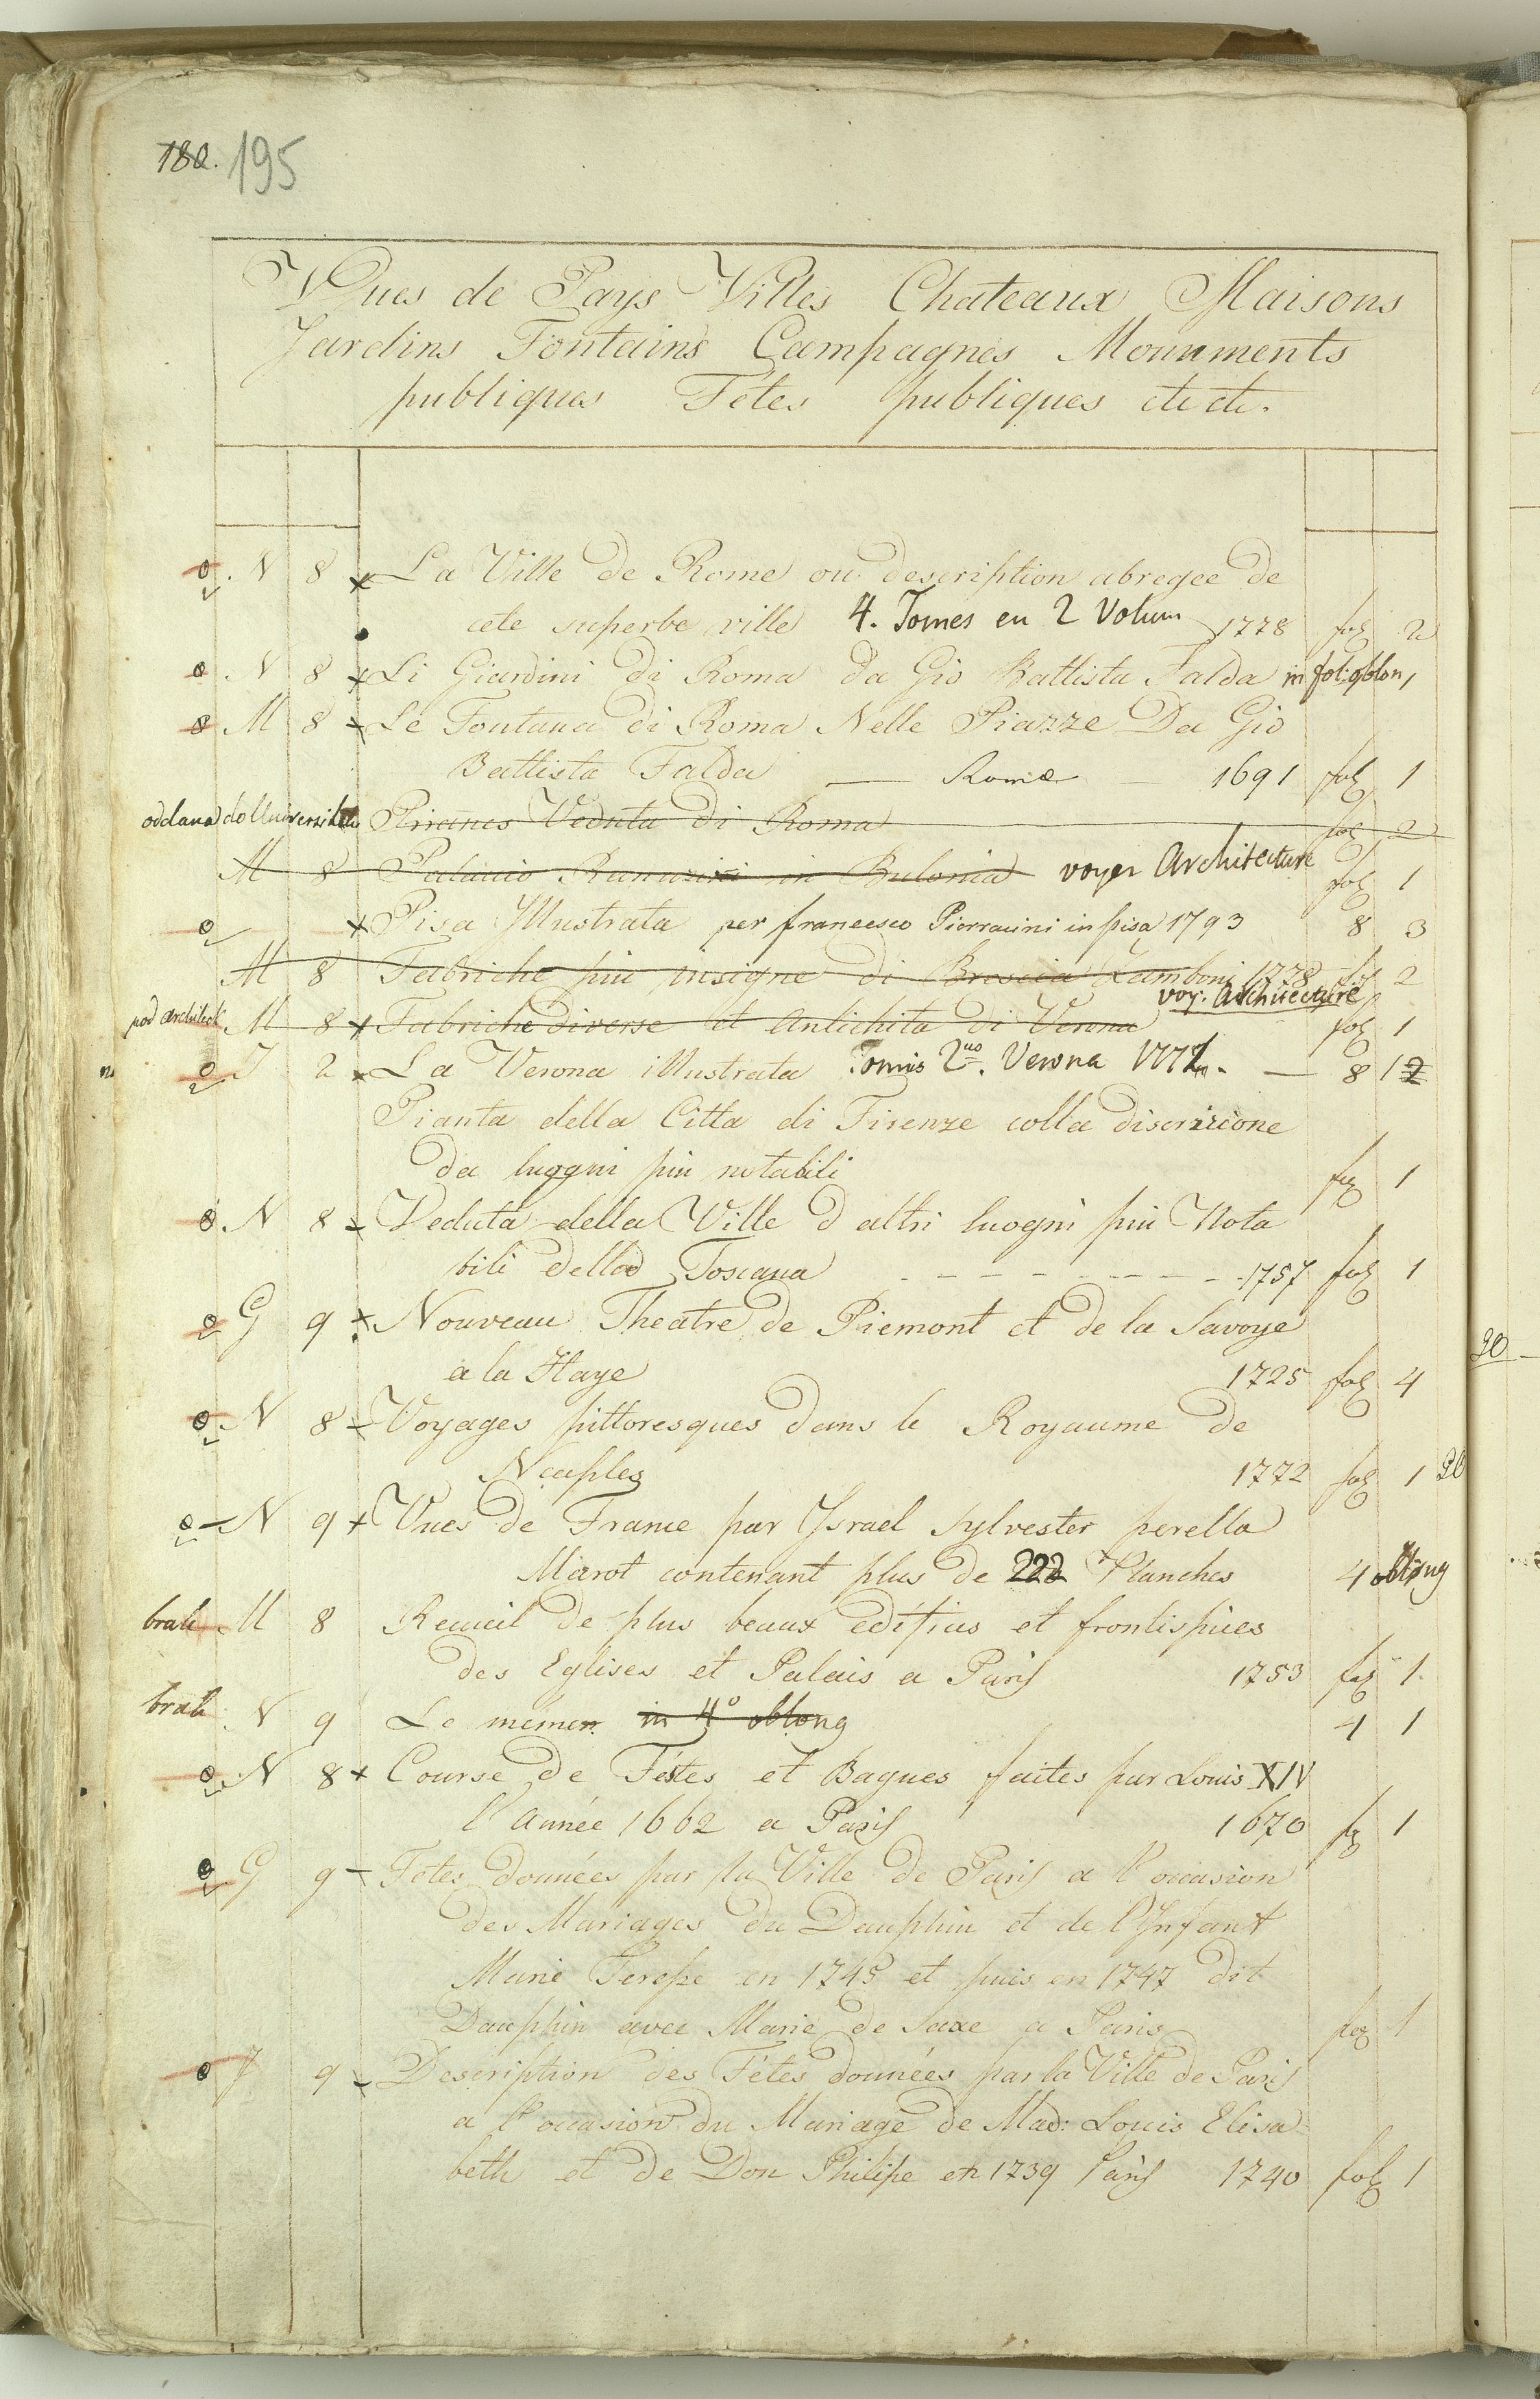 180. 195
Vues de Pays Villes Chateaux Maisons
Jardins Fontains Campagnes Monuments
publiques Fétes publiques etc etc.
N 8 x La Ville de Rome ou description abregee de
cete superbe ville 4. Tomes en 2 Volum 1778 fol 2
N 8 x Li Giardini di Roma da Gio Battista Falda in fol: oblon 1
M 8 x Le Fontana di Roma Nelle Piazze Da Gio
Battista Falda — Romæ — 1691 fol 1
oddana do Uniwersitetu Piranes Veduta di Roma fol 2
M 8 Palacio Ranuzini in Bulonia voyer Architecture fol 1
x Pisa Illustrata per francesco Pierracini in pisa 1793 8 3
M 8 Fabriche piu insigne di Brescia Zamboni 1778 fol 2
voy. Architecture
pod architek M 8 x Fabriche diverse et Antichita di Verona fol 1
J 2 x La Verona illustrata Tomis 2uo. Verona 1771. — 8 1 2
Pianta della Citta di Firenze colla discrizione
da luggni piu notabili fol 1
N 8 Veduta della Ville d altri luogni piu Nota
bili della Toscana 1757 fol 1
G 9 x Nouveau Theatre de Piemont et de la Savoye
a la Haye 1725 fol 4
N 8 Voyages pittoresques dans le Royaume de
Neaples 1772 fol 1
N 9 x Vues de France par Israel Sylvester perella
Marot contenant plus de 222 Planches 4 oblong
brak M 8 Recueil de plus beaux edifius et frontispices
des Eglises et Palais a Paris 1753 fol 1.
brak N 9 Le memen in 4o oblong 4 1
N 8 x Course de Festes et Bagues faites par Louis XIV
l'Année 1662 a Paris 1670 fol 1
G 9 Fetes données par la Ville de Paris a l'occasion
des Mariages du Dauphin et de l'Infant
Marie Terese en 1745 et puis en 1747 dit
Dauphin avec Marie de Saxe a Paris fol 1
J 9 Description des Fétes données par la Ville de Paris
a l'occasion du Mariage de Mad: Louis Elisa
beth et de Don Philipe en 1739 Paris 1740 fol 1